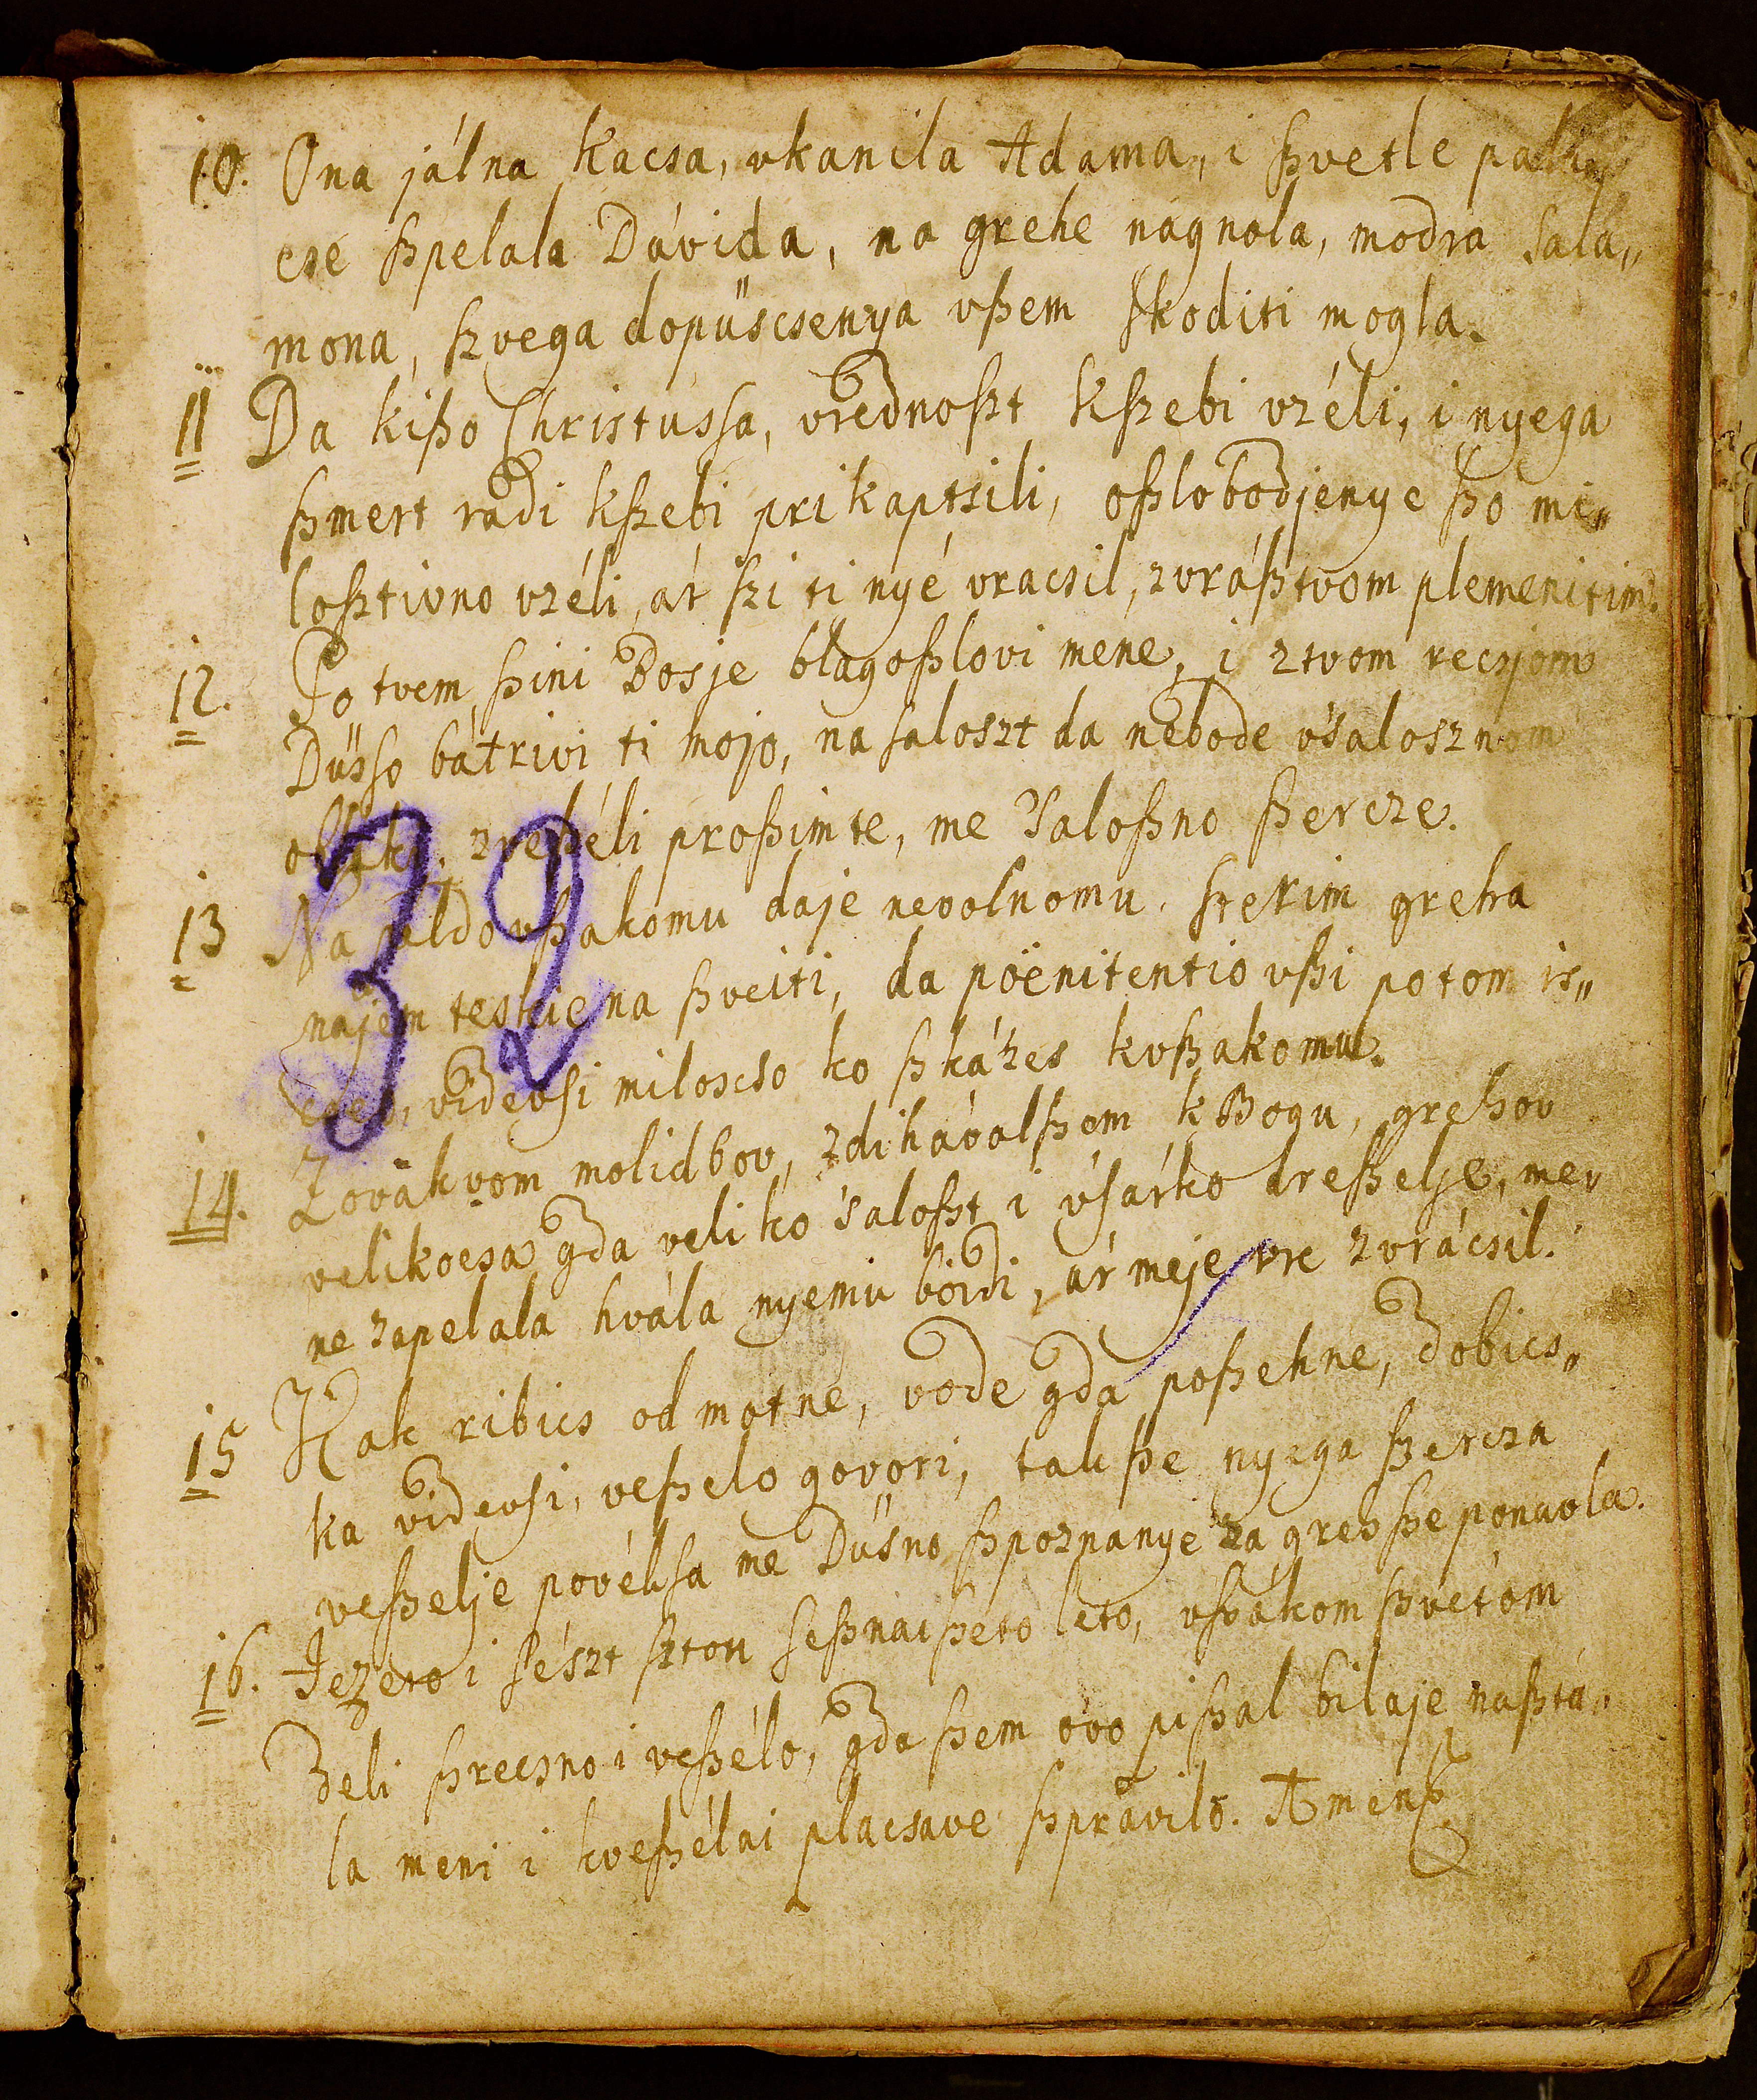 10. Ona jálna kacsa, vkanila Adama, i ßvetle
cse ßpelala Dávida, na grehe nagnola, modra Sala„
mona, ßvega dopüscsenya vßem skoditi mogla.
11 Da kißo Christussa, vrednoßt kßebi vzéli, i nyega
ßmert radi kßebi prikaptsili, oßlobodjenye ßo mi„
loßtivno vzéli, ár ßi ti nyé vracsil, zvráßtvom plemenitim.
12. Po tvem ßini Bosje blagoßlovi mene, i ztvom recsjom
Düsso bátrivi ti mojo, na saloszt da nebode vsalosznom
zveßéli proßimte, me saloßno ßercze.
13 Na vßakomu daje nevolnomu, ßterim greha
najem teskie na ßveiti, da pöenitentio vßi potom is„
videvsi miloscso ko ßkázes kvßakomu.
14. Zovákvom molidbov, zdihávalßem k Bogu, grehov
velikocsa gda veliko saloßt i vsárko dreßelje, me„
ne zapelala hvála nyemu böidi, ár meje vre zvrácsil.
15 Kak ribics od motne, vode gda poßehne, dobics„
ka videvsi, veßelo govori, tak ße nyega ßercza
veßelje povéksa me Düsno ßpoznanye za greh ße ponuola.
16. Jezero i sészt ßtou seßnaißeto leto, vßákom ßvetom
Deli ßrecsno i veßélo, gda ßem ovo pißal bilaje naßtá„
la meni i kveßélai placsave ßprávilo. Amen
32